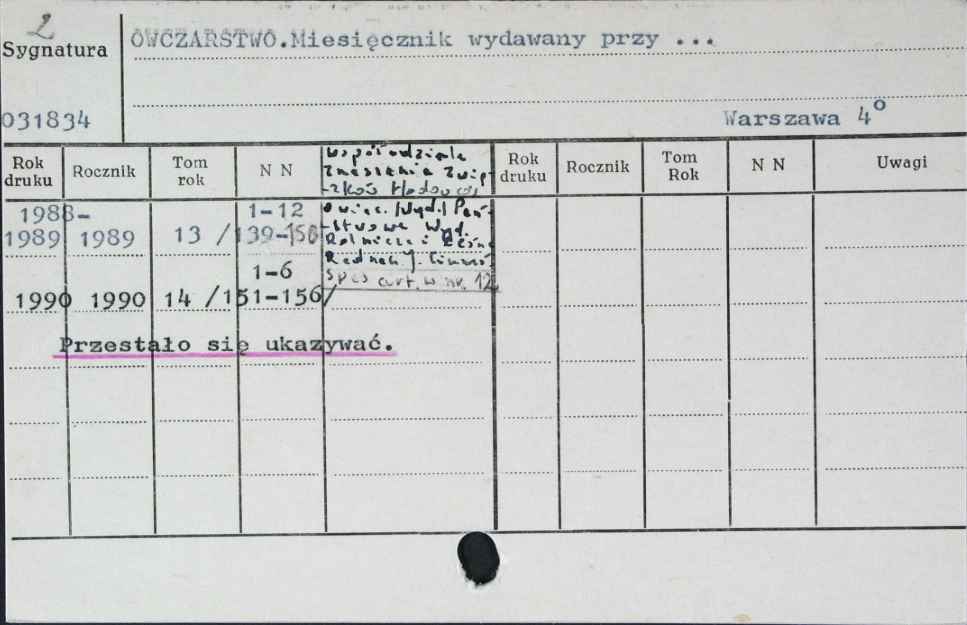 2
Sygnatura
OWCZARSTWO.Miesięcznik wydawany przy ...
031834
Warszawa 4°
Rok druku Rocznik Tom rok N N Rok druku Rocznik Tom Rok N N Uwagi
Współudziale
Zrzeszenia Zwią-
-zków Hodowców
Owiec. /Wyd./ Pań-
-stwowe Wyd.
Rolnicze i Leśne
Rednacz. J.
Spis art. w nr. 12.
1988- 1-12
1989 1989 13 /139-150
1-6
1990 1990 14 /151-156/
Przestało się ukazywać.